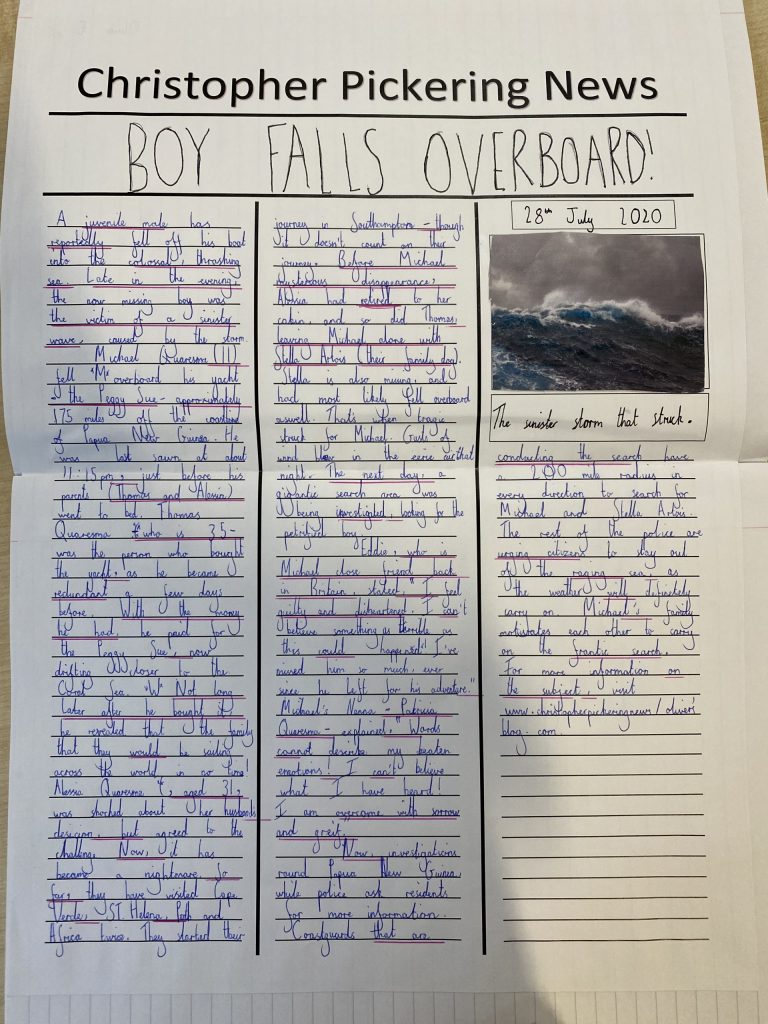 Christopher Pickering News
BOY FALLS OVERBOARD!
A juvenile male has
reportedly fell off his boat
into the colossal, thrashing
sea. Late in the evening,
the now missing boy was
the victim of a sinister
wave, caused by the storm.
Michael Quaresma (11)
fell overboard his yacht
- the Peggy Sue - approximately
175 miles off the coastline
of Papua New Guinea. He
was last sawn at about
11:15pm, just before his
parents (Thomas and Alessia)
went to bed. Thomas
Quaresma who is 35-
was the person who bought
the yacht, as he became
redundant a few days
before. With the money
he had, he paid for
the Peggy Sue, now
drifting closer to the
Coral Sea. Not long
later after he bought it,
he revealed that the family
that they would be sailing
across the world in no time!
Alessia Quaresma, aged 31,
was shocked about her husbands
desicion, but agreed to the
challeng. Now, it has
became a nightmare. So
far, they have visited Cape
Verde, ST. Helena, Perth and
Africa twice. They started their
journey in Southampton - though
it doesn't count on their
journey. Before Michael
mysterious disappearance,
Alessia had retired to her
cabin, and so did Thomas,
leaving Michael alone with
Stella Artois (their family dog).
Stella is also missing, and
had most likely fell overboard
aswell. That's when tragic
struck for Michael. Gusts of
wind blew in the eerie air that
night. The next day, a
gigantic search area was
being investigated, looking for the
petrified boy.
"Eddie, who is
Michael close friend back
in Britain stated, "I feel
guilty and disheartened. I can't
believe something as thrible as
this could happened! I've
missed him so much, ever
since he left for his adventure."
Michael's Nanna - Patricia
Quaresma - explained, "Words
cannot describe my beaten
emotions! I can't believe
what I have heard!
I am overcome with sorrow
and greif."
Now, investigations
round Papua New Guinea,
while police ask residents
for more information.
Coastguards that are
28th July 2020
The sinister storm that struck.
conducting the search have
a 200 mile radius in
every direction to search for
Michael and Stella Artois.
The rest of the police are
urging citizens to stay out
of the raging sea as
the weather will definetely
carry on. Michael's family
motivates each other to carry
on the frantic search.
For more information on
the subject, visit
www.christopherpickeringnews/oliver's
blog.com.